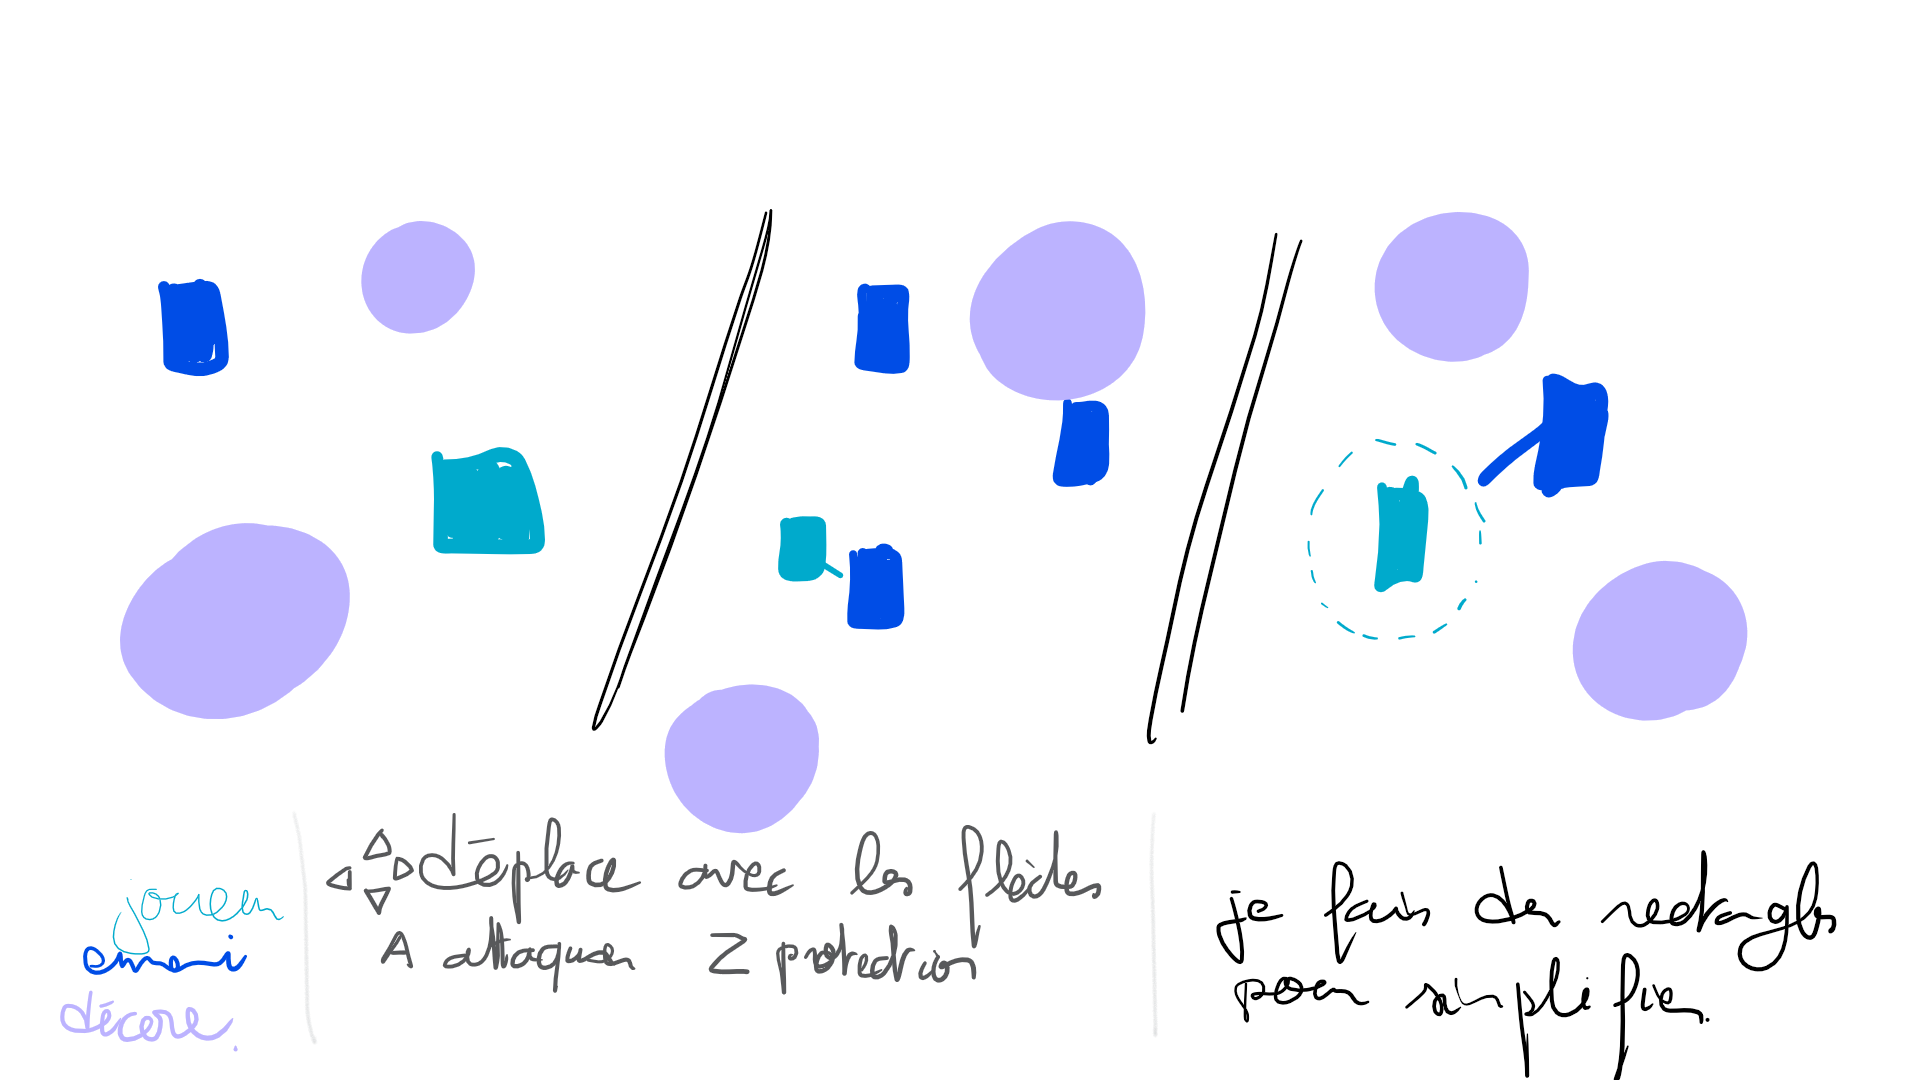 joueur
ennemi
décore.
déplace avec les flèches
A attaquer Z protection
je fais des rectangles
pour simplifier.